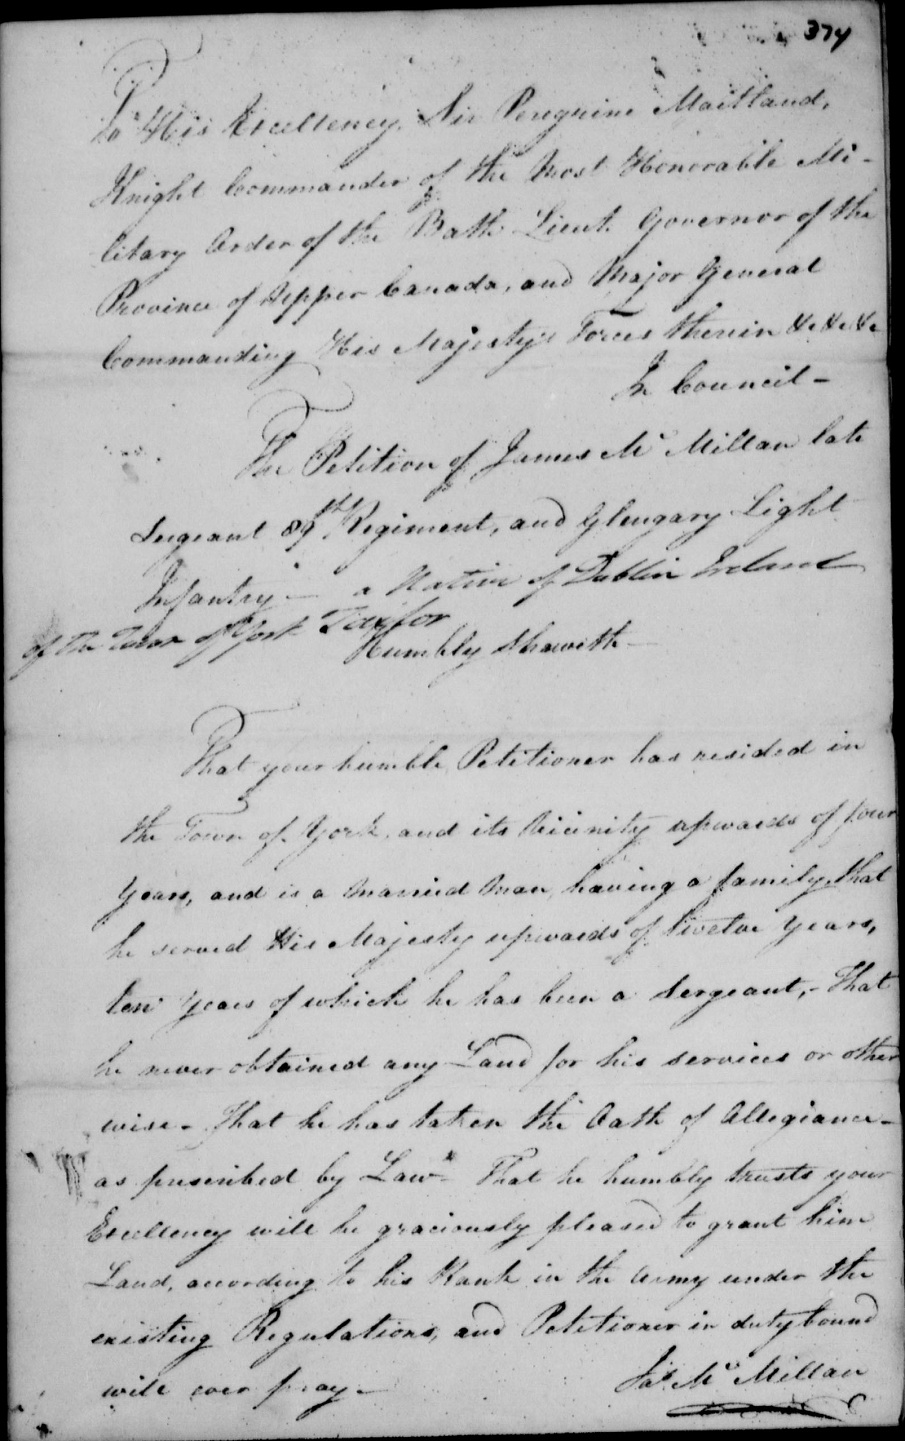 374
To His Excellency, Sir Peregrine Maitland,
Knight Commander of the Most Honorable Mi-
litary Order of the Bath Lieut Governor of the
Province of Upper Canada, and Major General
Commanding His Majesty's Forces therein &c &c &c
In Council -
The Petition of James Mc Millan late
Sergeant 89th Regiment, and Glengary Light
Infantry - a Native of Dublin Ireland
of the Town of York Taylor
Humbly Sheweth -
That your humble Petitioner has resided in
the Town of York and its vicinity upwards of four
Years, and is a Married Man, having a family, that
he served His Majesty upwards of twelve Years,
ten Years of which he has been a Sergeant, - That
he never obtained any Land for his services or other
wise - That he has taken the Oath of Allegiance -
as prescribed by Law - That he humbly trusts your
Excellency will be graciously pleased to grant him
Land, according to his Rank in the Army under the
existing Regulations, and Petitioner in duty bound
will ever pray -
Jas Mc Millan